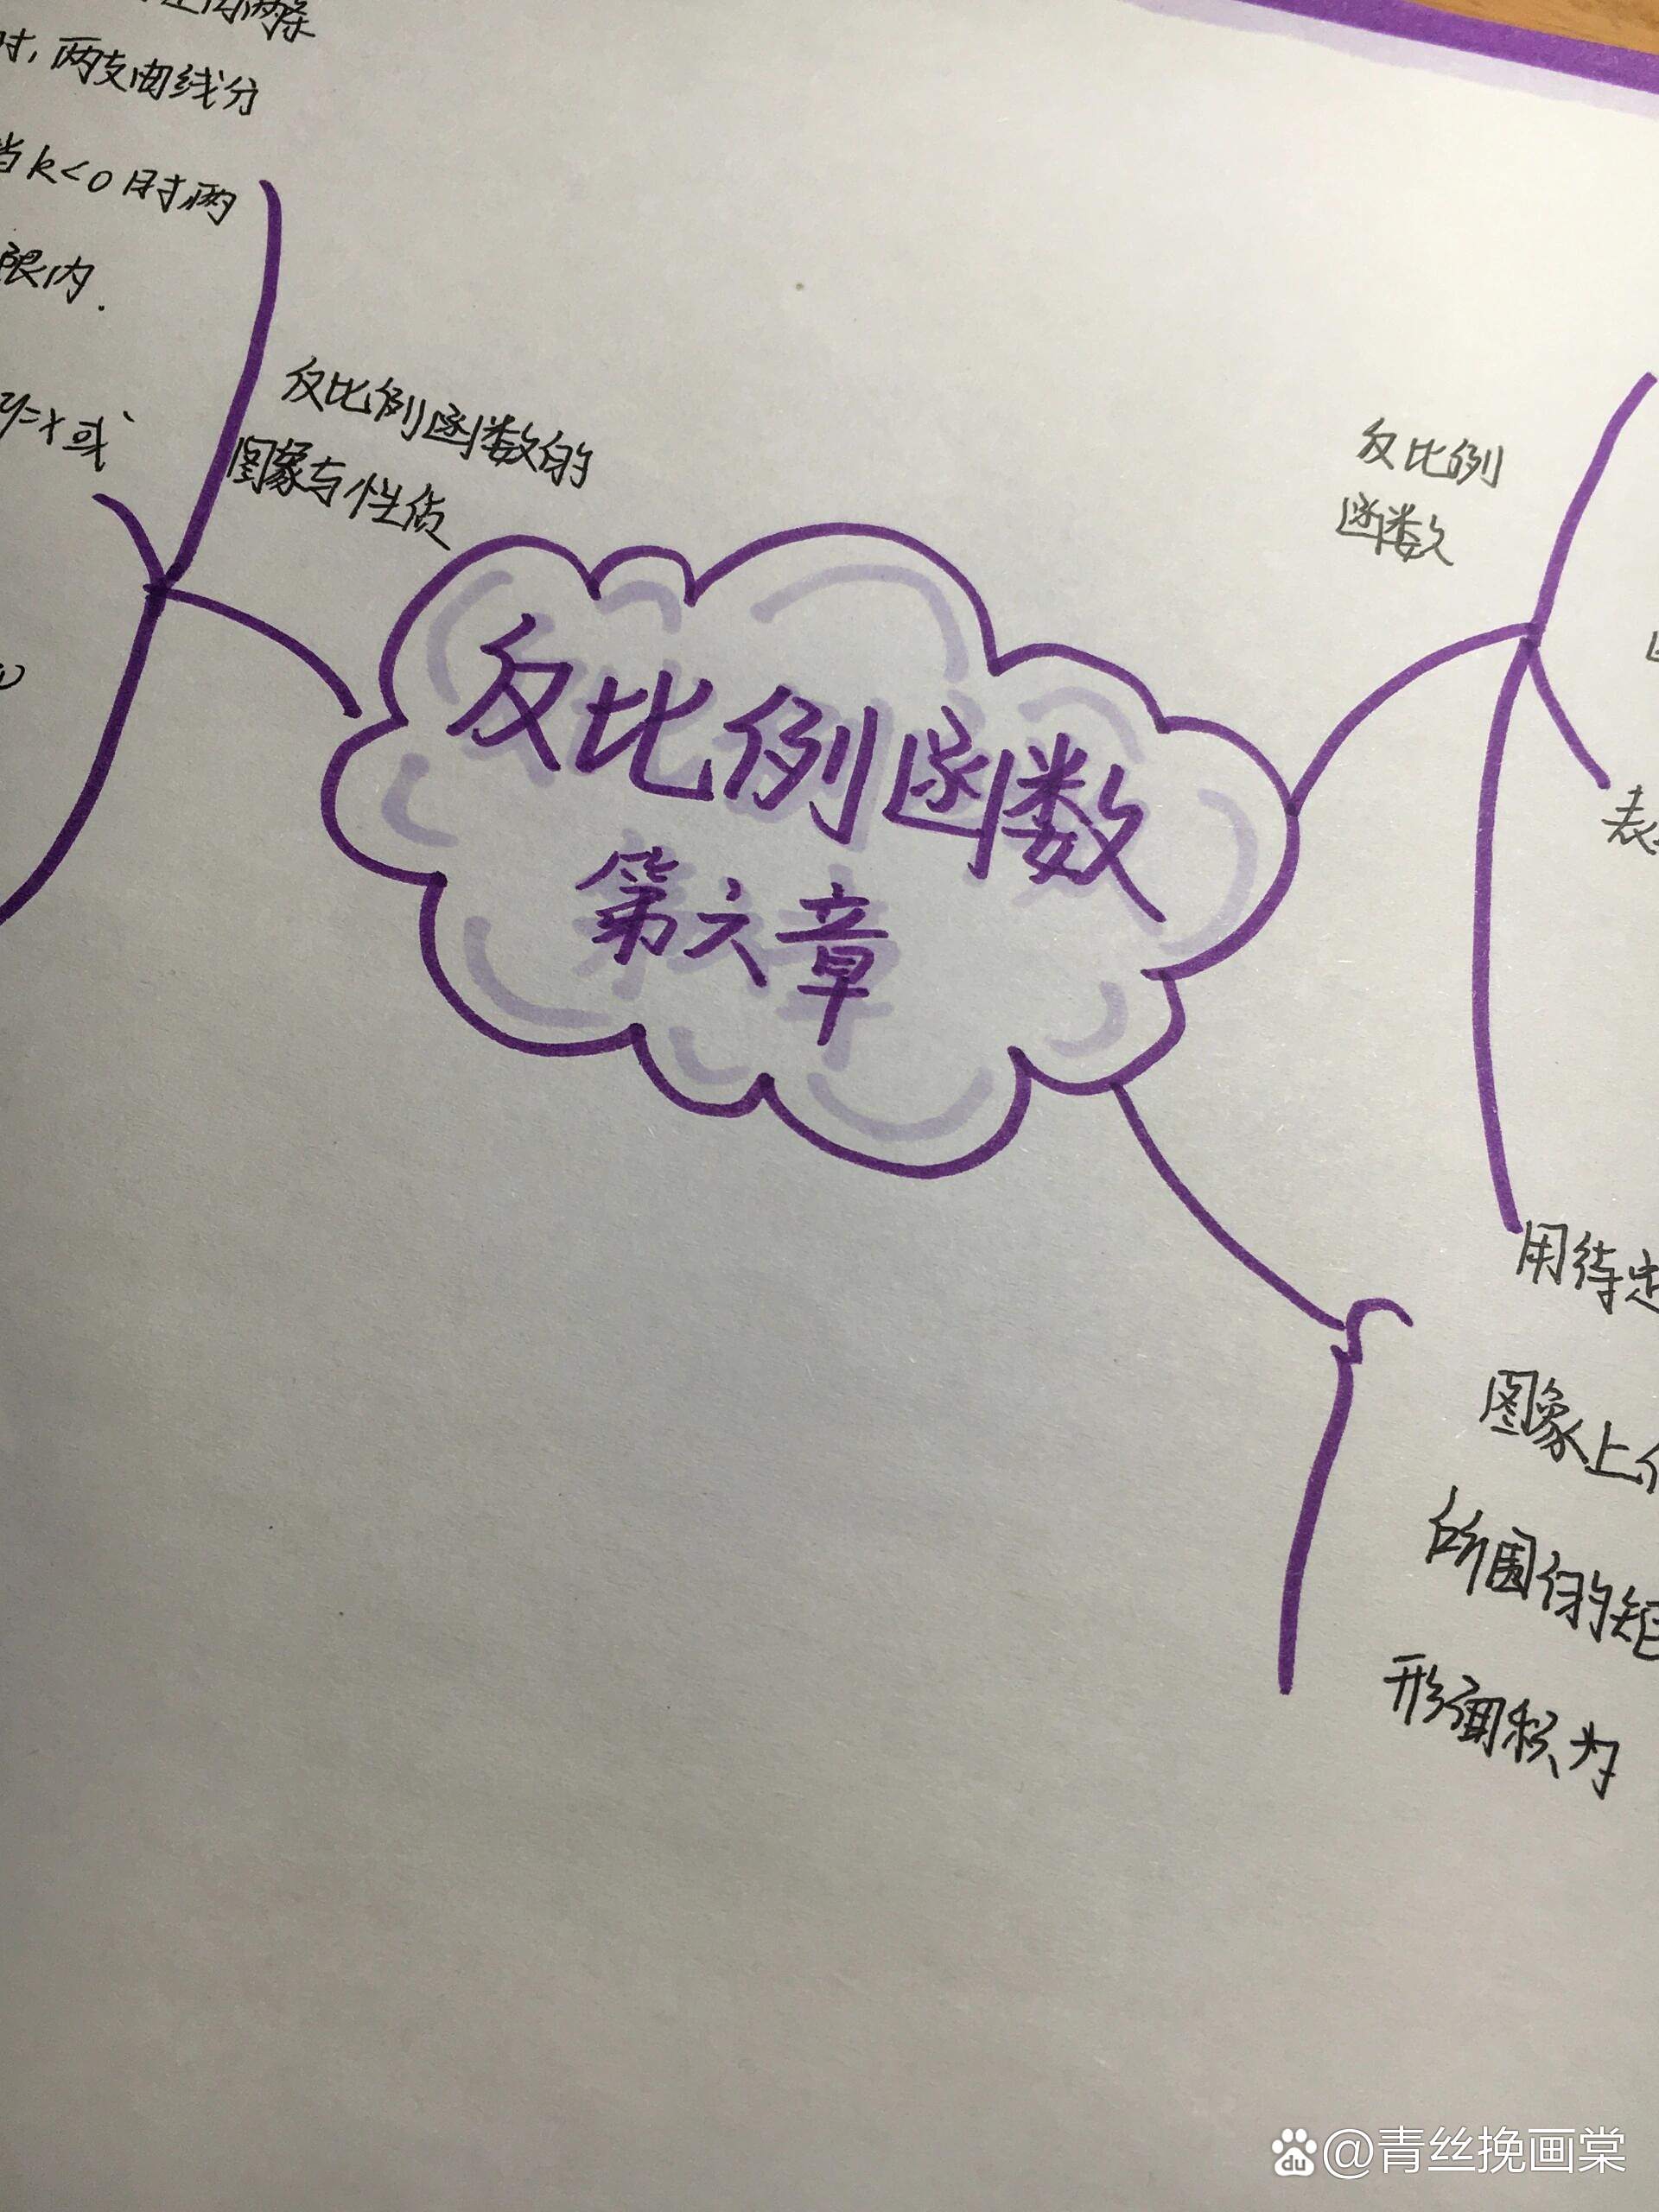 时,两支曲线分
当k<0时,两
限内.
y=x或
反比例函数的
图象与性质
反比例函数
第六章
反比例
函数
表
用待定
图象上
所围们的矩
形面积为
@青丝挽画棠